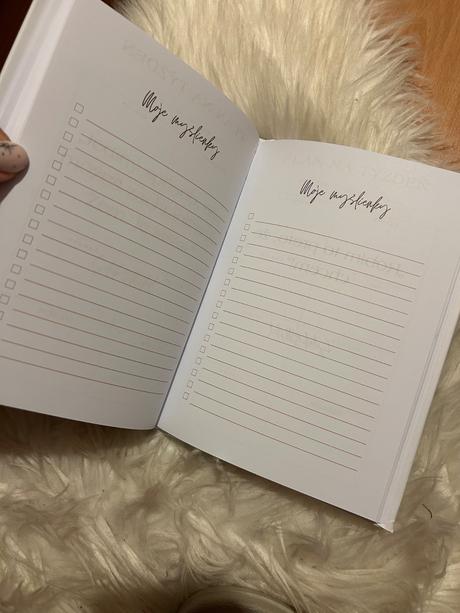 Moje myšlienky
Moje myšlienky